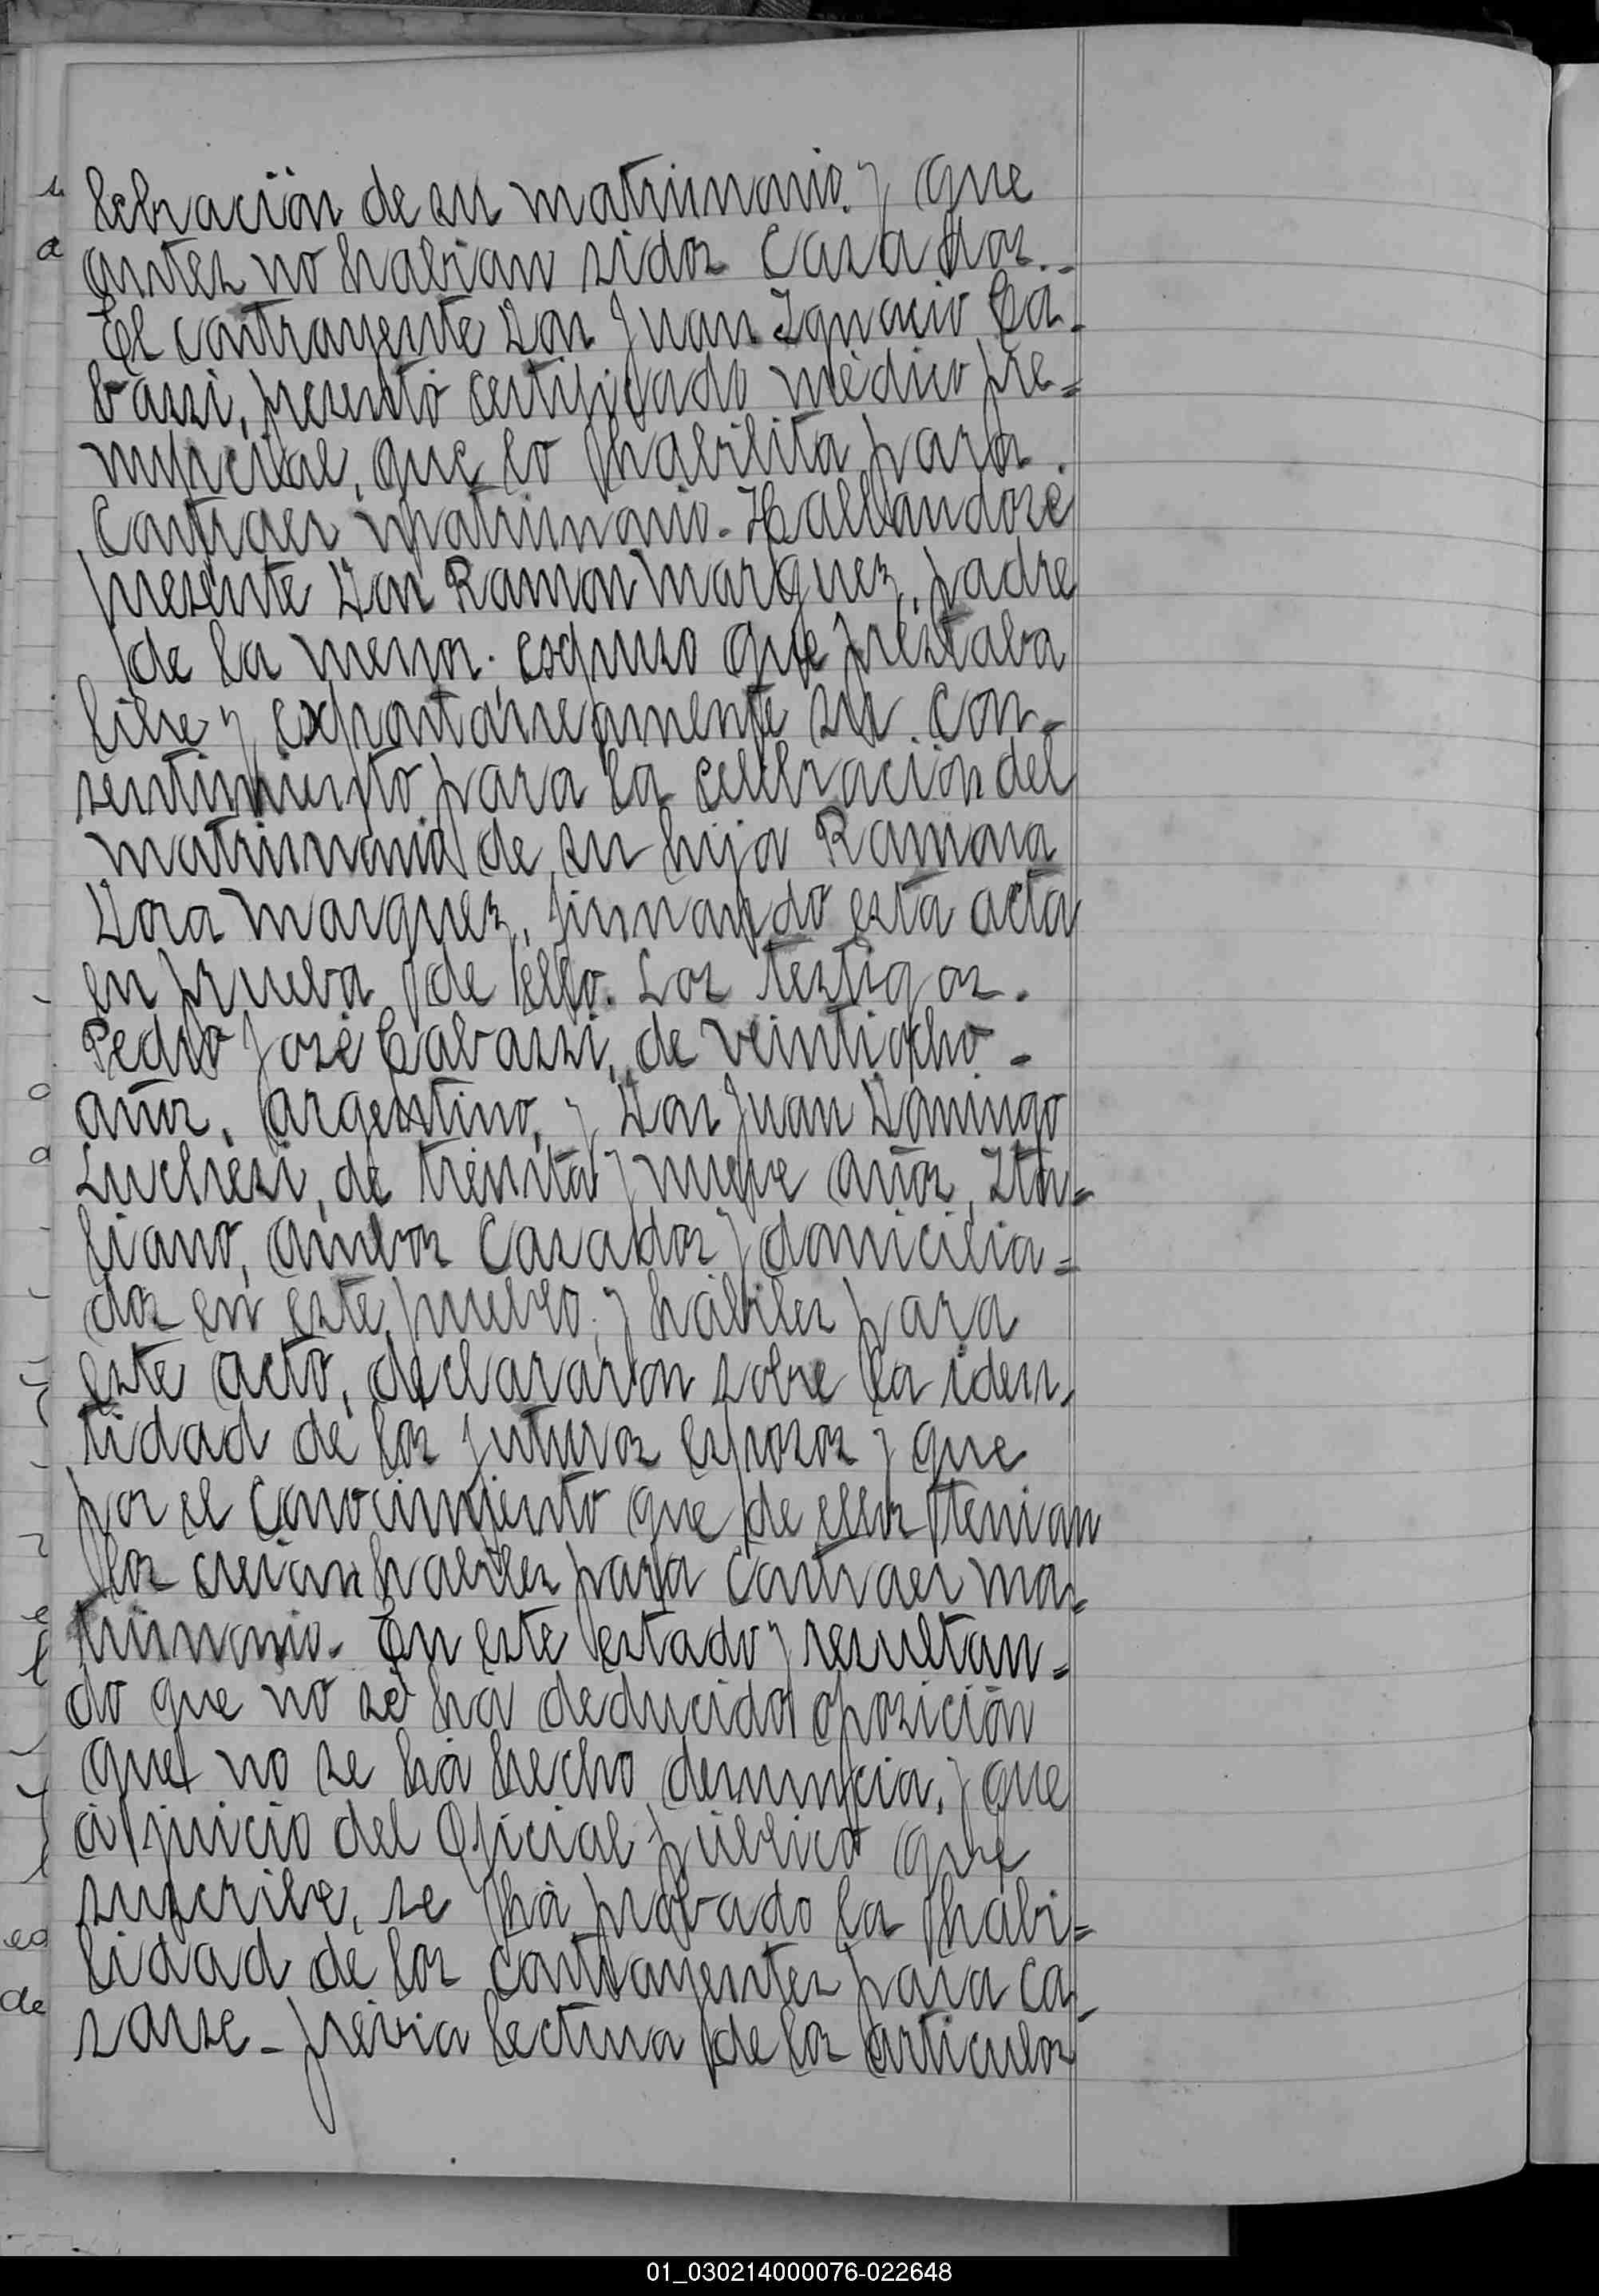 lebración de su matrimonio y que
antes no habian sidos casados.-
El contrayente Don Juan Ignacio Ca-
bassi, presentó certificado médico pre=
nupcial, que lo habilita para
contraer matrimonio. Hallandose
presente Don Ramon Marquez, padre
de la menor; expuso que prestaba
libre y expontáneamente su con-
sentimiento para la celebración del
matrimonio de su hija Ramona
Dora Marquez, firmando esta acta
en prueba de ello. Los testigos.
Pedro José Cabassi, de veintiocho -
años, argentino, y Don Juan Domingo
Luchesi, de treinta y nueve años, Ita=
liano, ambos casados y domicilia=
dos en este pueblo; y hábiles para
este acto, declararon sobre la iden-
tidad de los futuros esposos y que
por el conocimiento que de ellos tenian
los creian habiles para contraer ma-
trimonio. En este estado y resultan=
do que no se ha deducido oposición
que no se ha hecho denuncia, y que
á juicio del Oficial público que
suscribe, se ha probado la habi=
lidad de los contrayentes para ca-
sarse - prévia lectura de los articulos
01_030214000076-022648